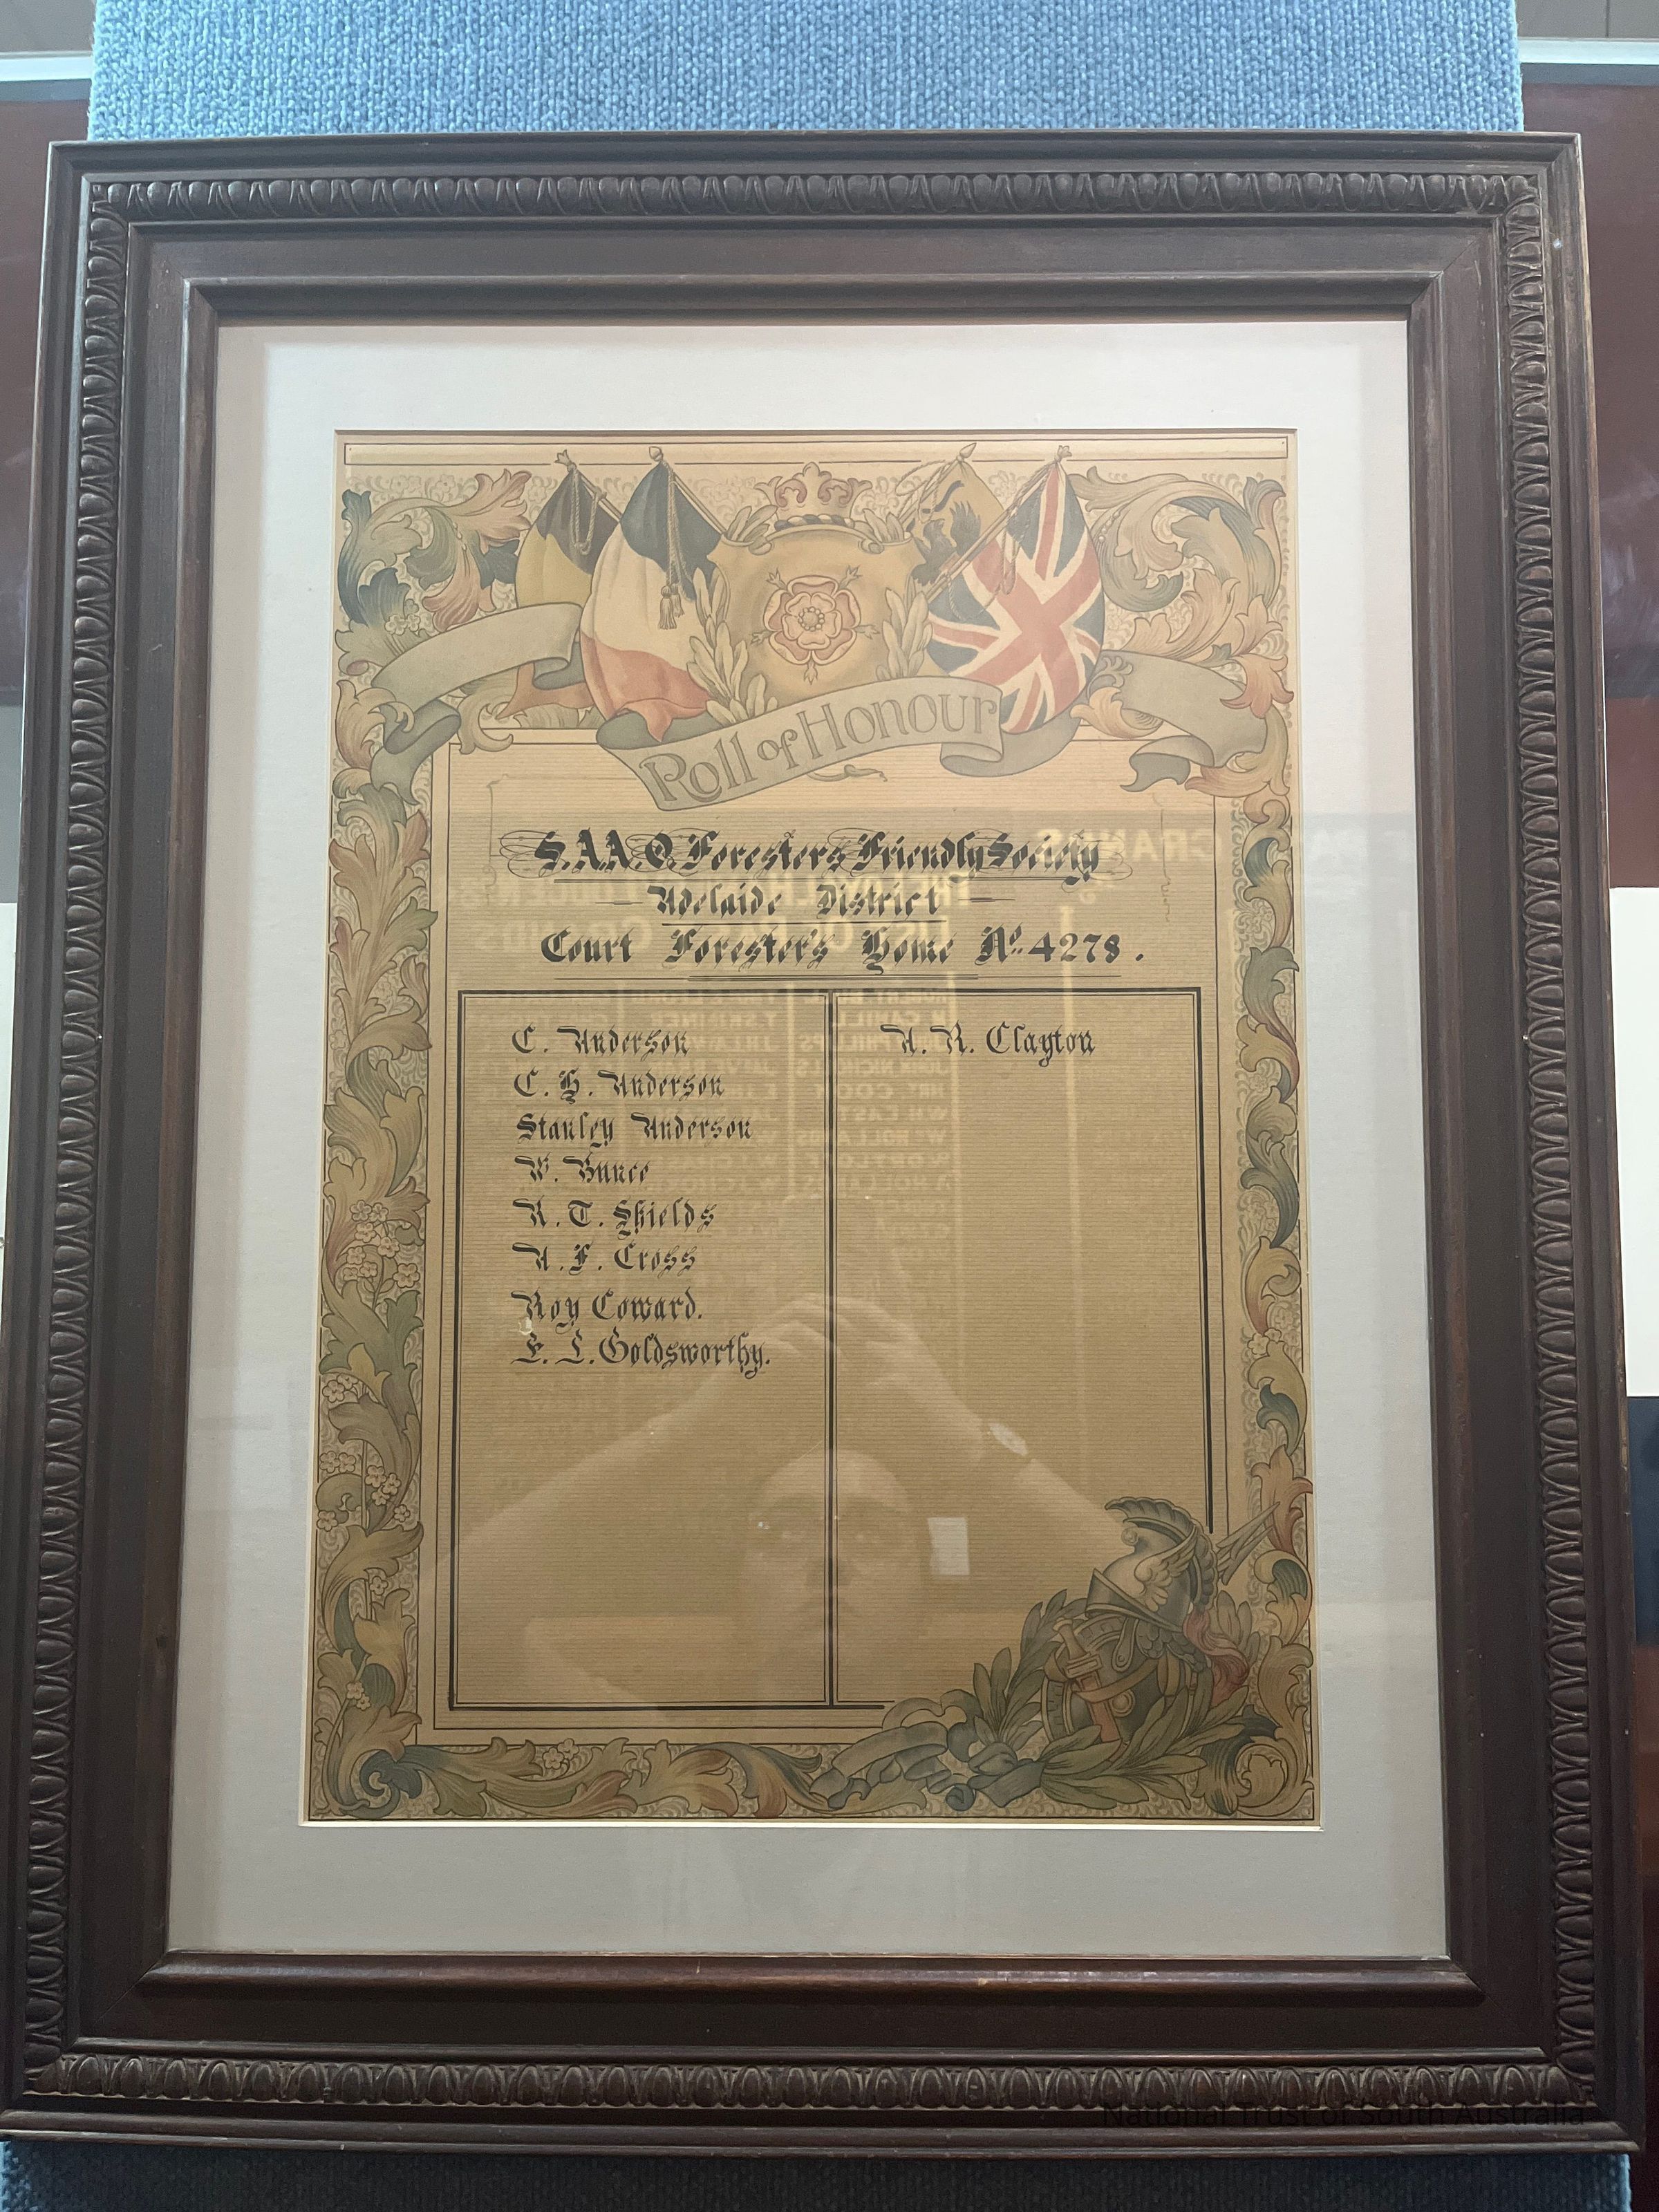 Roll of Honour
S.A.A.O. Foresters Friendly Society
Adelaide District
Court Forester's Home No. 4278.
C. Anderson
C. H. Anderson
Stanley Anderson
W. Bunce
R. T. Shields
A. F. Cross
Roy Coward.
E. L. Goldsworthy.
A. R. Clayton
National Trust of South Australia